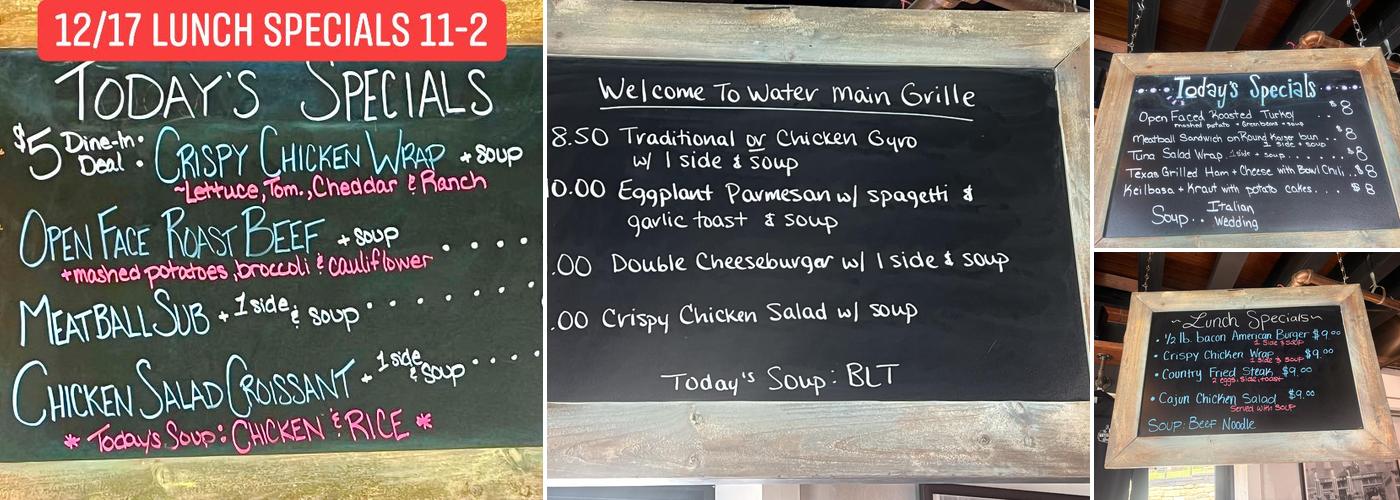 12/17 LUNCH SPECIALS 11-2
TODAY'S SPECIALS
$5 Dine-In Deal: CRISPY CHICKEN WRAP + SOUP
~Lettuce, Tom., Cheddar & Ranch
OPEN FACE ROAST BEEF + SOUP . . . .
+mashed potatoes, broccoli & cauliflower
MEATBALL SUB + 1 side & SOUP . . . . . . .
CHICKEN SALAD CROISSANT + 1 side & SOUP . . . .
* Today's Soup: CHICKEN & RICE *
Welcome To Water Main Grille
8.50 Traditional or Chicken Gyro
w/ 1 side & soup
0.00 Eggplant Parmesan w/ spagetti &
garlic toast & soup
.00 Double Cheeseburger w/ 1 side & soup
.00 Crispy Chicken Salad w/ soup
Today's Soup: BLT
Today's Specials
Open Faced Roasted Turkey . . . $8
mashed potato + Greenbeans + soup
Meatball Sandwich on Round Kaiser bun . . $8
1 side + soup
Tuna Salad Wrap 1 side + soup . . . . . . $8
Texas Grilled Ham + Cheese with Bowl Chili . . $8
Keilbasa + Kraut with potato cakes . . . $8
Soup . . Italian
Wedding
~Lunch Specials~
• 1/2 lb. bacon American Burger $9.00
1 side & soup
• Crispy Chicken Wrap $9.00
1 side & soup
• Country Fried Steak $9.00
2 eggs, side, toast
• Cajun Chicken Salad $9.00
Served with soup
SOUP: Beef Noodle